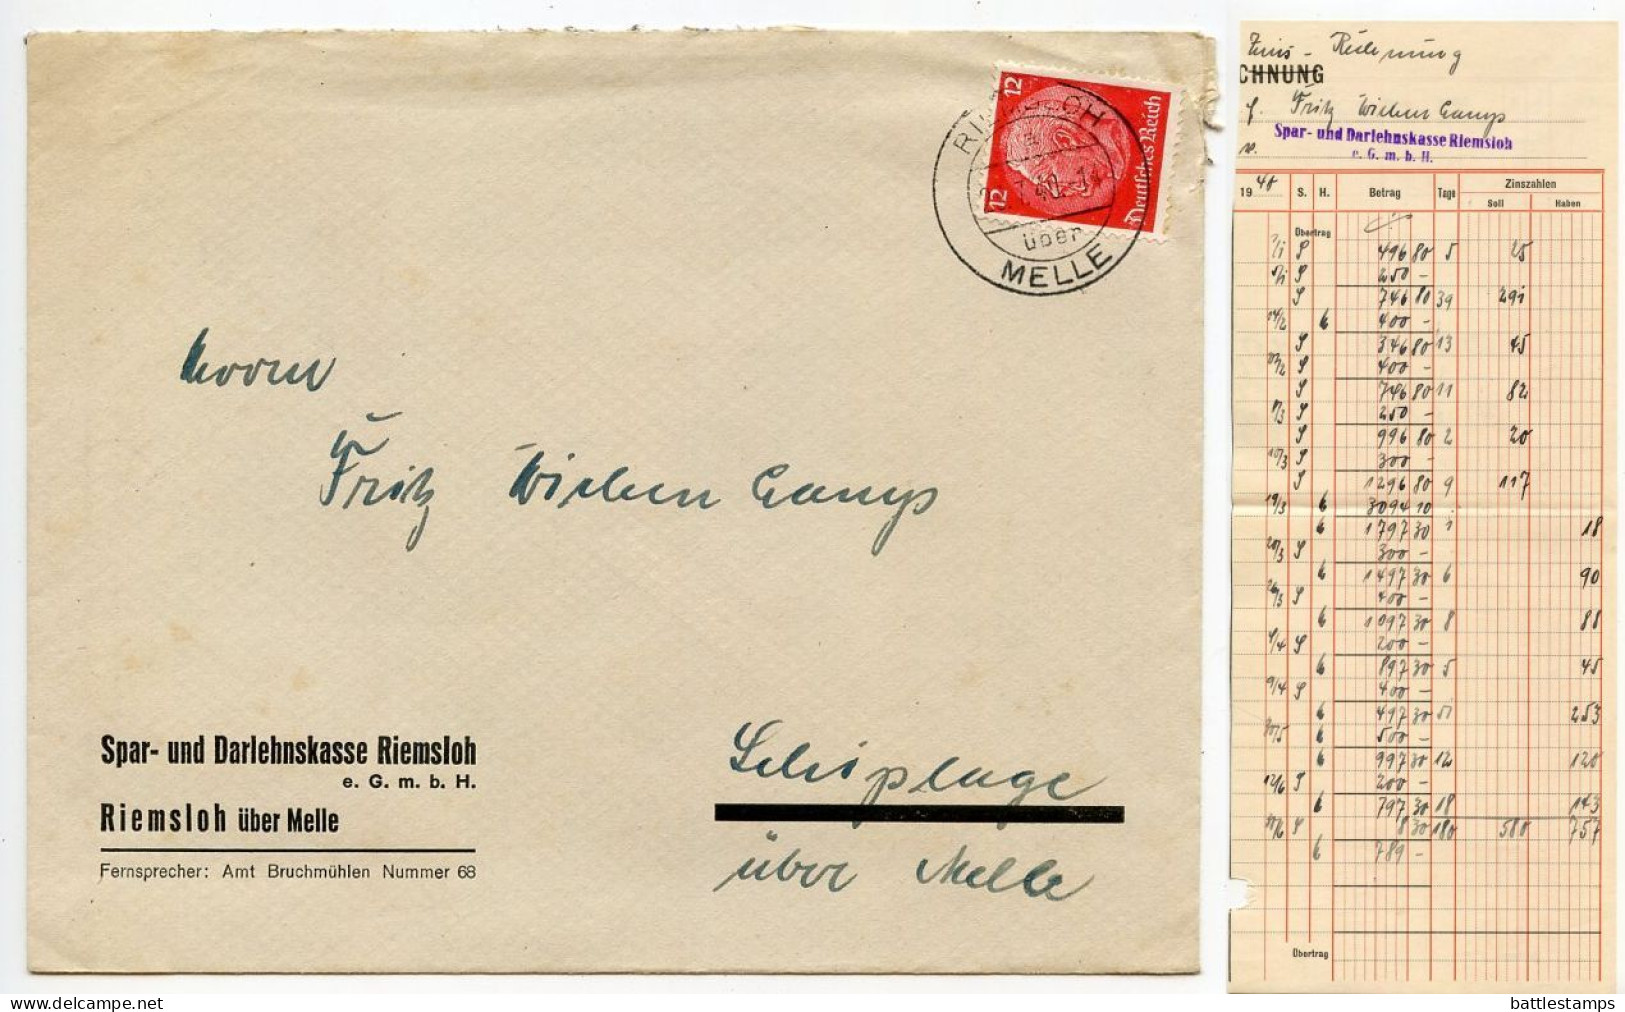 12 12
Deutsches Reich
über
MELLE
Herrn
Fritz
Schiplage
über Melle
Spar- und Darlehnskasse Riemsloh
e. G. m. b. H.
Riemsloh über Melle
Fernsprecher: Amt Bruchmühlen Nummer 68
Zins - Rechnung
CHNUNG
f. Fritz
Spar- und Darlehnskasse Riemsloh
e. G. m. b. H.
v.
1940 S. H. Betrag Tage Zinszahlen
Soll Haben
Übertrag
S 496 80 5 25
S 250 -
S 746 80 39 291
14/2 H 400 -
S 346 80 13 45
S 400 -
S 746 80 11 82
8/3 S 250 -
S 996 80 2 20
10/3 S 300 -
S 1296 80 9 117
19/3 H 3094 10
H 1797 30 1 18
20/3 S 300 -
H 1497 30 6 90
26/3 S 400 -
H 1097 30 8 88
4/4 S 200 -
H 897 30 5 45
9/4 S 400 -
H 497 30 51 253
30/5 H 500 -
H 997 30 12 120
12/6 S 200 -
H 797 30 18 143
30/6 S 8 30 180 580 757
H 789 -
Übertrag
battlestamps